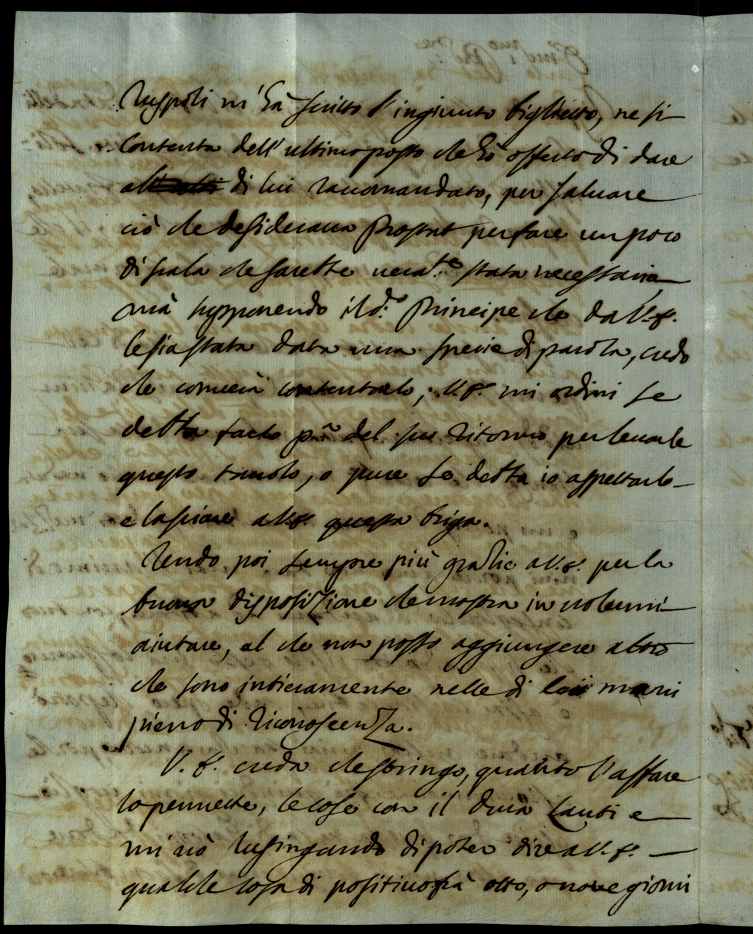 Ruspoli m'hà scritto l'ingiunto biglietto, ne si
contenta dell'ultimo posto che hò offerto di dare
di lui raccomandato, per salvare
ciò che desiderava per fare un poco
di scala che sarebbe veram.te stata necessaria
mà supponendo il d.o Principe che da V.E.
le sia stata data una specie di parola, credo
che converrà contentarlo, V.E. mi ordini se
debba farlo p.ma del suo ritorno per levarle
questo tavolo, o pure se debba io aspettarlo
e lasciare a V.E. questa briga.
Rendo poi sempre più grazie a V.E. per la
buona disposizione che mostra in volermi
aiutare, al che non posso aggiungere altro
che sono intieramente nelle di lei mani
pieno di riconoscenza.
V.E. creda che stringo, quanto l'affare
lo permette, le cose con il Duca Lanti e
mi vò lusingando di poter dire a V.E.
qualche cosa di positivo frà otto, o nove giorni